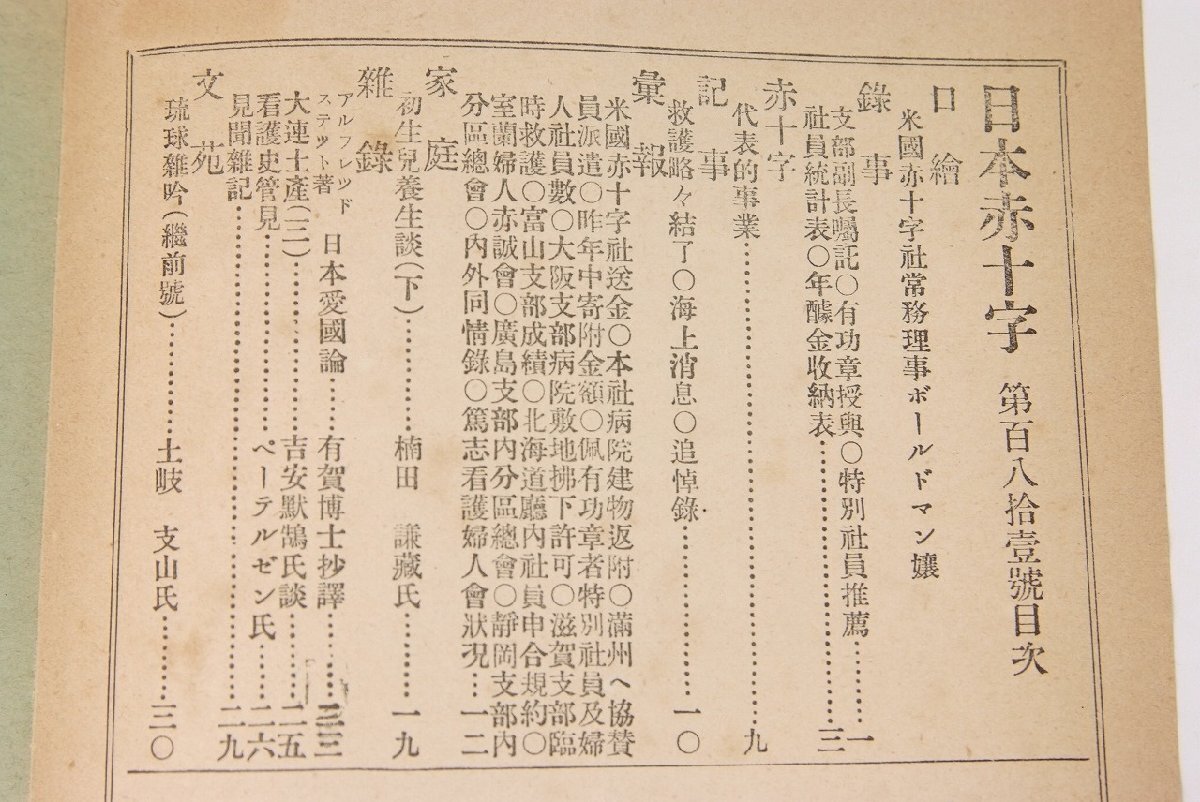 日本赤十字 第百八拾壹號目次
口繪
米國赤十字社常務理事ボールドマン孃
錄事
支部副長囑託〇有功章授與〇特別社員推薦……一
社員統計表〇年醵金收納表……三
赤十字
代表的事業……九
記事
救護略々結了〇海上消息〇追悼錄……一〇
彙報
米國赤十字社送金〇本社病院建物返附〇滿州へ協贊
員派遣〇昨年中寄附金額〇佩有功章者特別社員及婦
人社員數〇大阪支部病院敷地拂下許可〇滋賀支部臨
時救護〇富山支部成績〇北海道廳內社員申合規約〇
室蘭婦人赤誠會〇廣島支部內分區總會〇靜岡支部內
分區總會〇內外同情錄〇篤志看護婦人會狀況…一二
家庭
初生兒養生談(下)……楠田 謙藏氏……一九
雜錄
アルフレッド
ステット著 日本愛國論……有賀博士抄譯……二三
大連土產(二)……吉安默鵠氏談……二五
看護史管見……ペーテルゼン氏……二六
見聞雜記……二九
文苑
琉球雜吟(繼前號)……土岐 支山氏……三〇